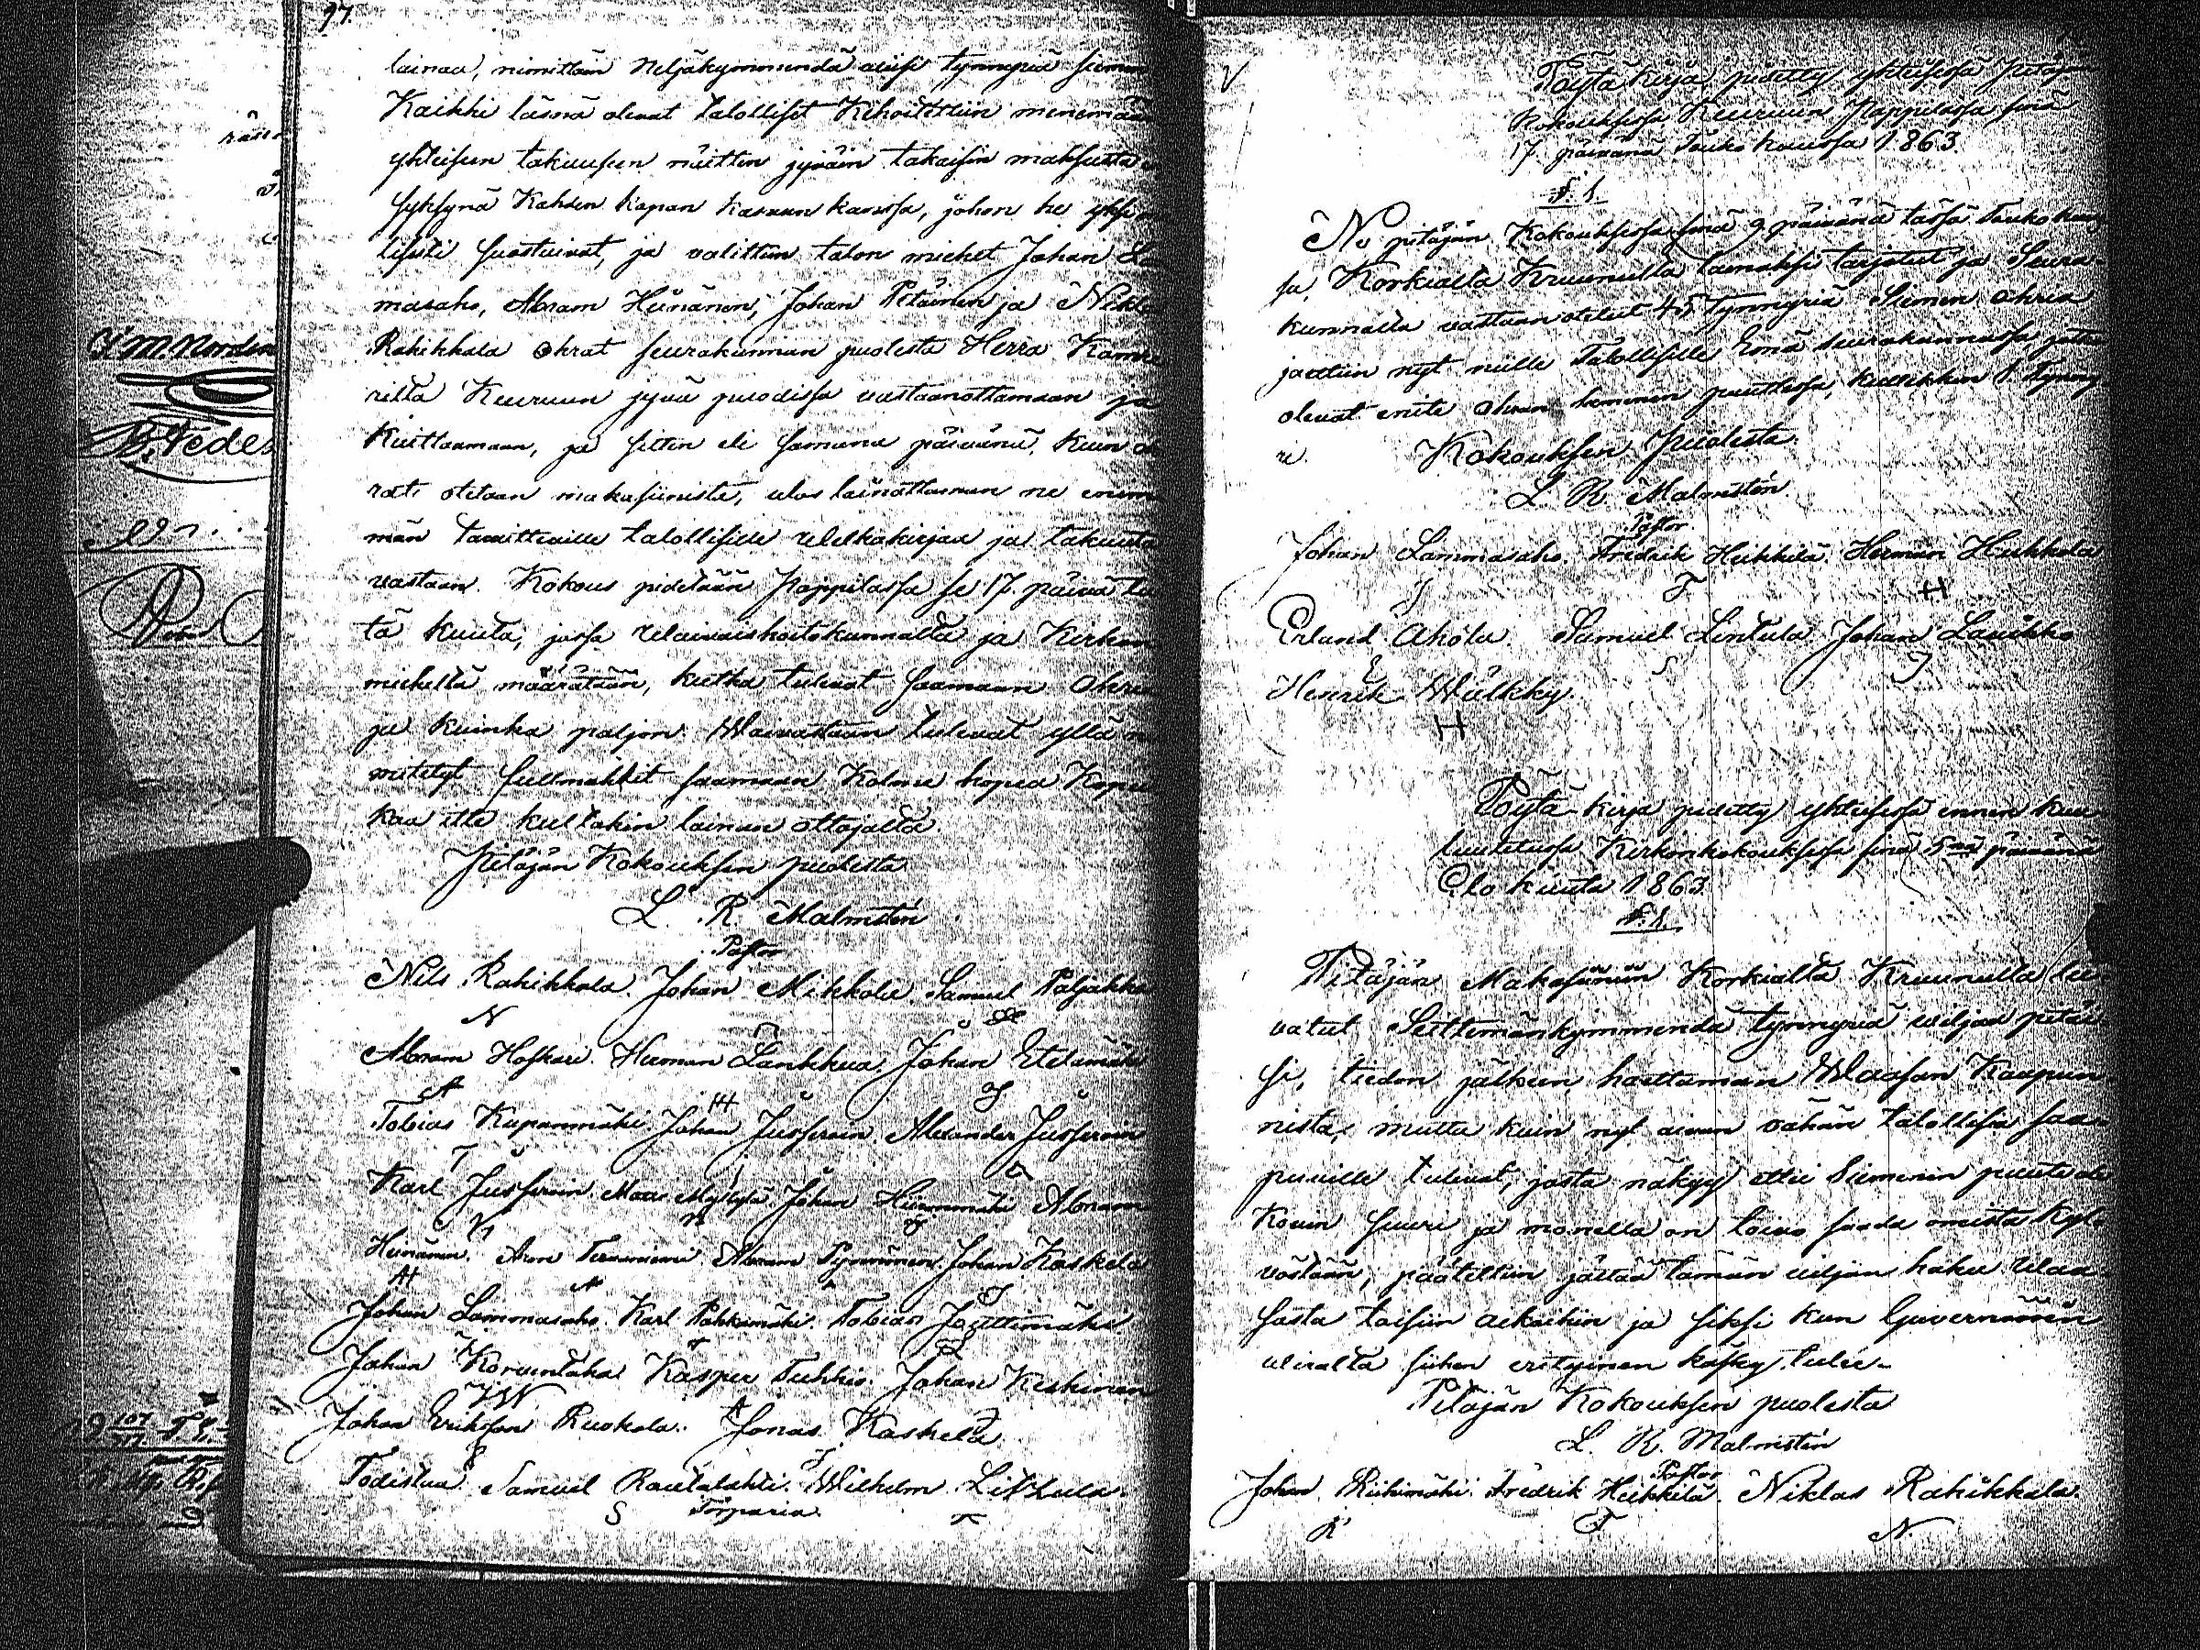 97.
lainaa, nimittäin Neljäkymmendä wiisi tynnyriä siemen
Kaikki läsnä olevat talolliset Kehoitettiin menemään
yhteisen takuusen näitten jyväin takaisin maksusta
syksynä Kahden kapan kasvun kanssa, johon he yksi
lisesti suostuivat, ja valittiin talon miehet Johan La
masaho, Abram Heinänen, Johan Petäinen ja Nikla
Rahikkala ohrat seurakunnan puolesta Herra Kam
rilta Keuruun jyvä puodissa vastaanottamaan ja
Kuittaamaan, ja sitten eli samana päivänä, kuin oh
rat otetaan makasiinista, ulos lainattaman ne enem
män tarvittaville talollisille velkakirjaa ja takuuta
vastaan. Kokous pidetään Pappilassa se 17. päivä tä
tä kuuta, jossa Waivaishoitokunnalta ja Kirkon
miehiltä määrätään, kutka tulevat saamaan Ohria
ja kuinka paljon. Waivastaan tulevat yllä ni
mitetyt fullmäktit saamaan Kolme kopea Kope
kaa itse kultakin lainan ottajalta.
Pitäjän Kokouksen puolesta
L. R. Malmstén
Pastor
Nils Rahikkala. Johan Mikkola. Samuel Paljakka
N
Abram Hoskari. Herman Lankkua. Johan Etelämäki
A H J
Tobias Kupanmäki. Johan Jusseroin. Alexander Jusseroin
T
Karl Jusseroin. Matts Myllylä. Johan Hiironmäki Abram
Heinänen. Aron Tervaniemi. Abram Pynnönen. Johan Kaskela
AH A
Johan Lammasaho. Karl Pohkamäki. Tobias Jouttimäki.
Johan Korventaka. Kasper Tuhkio. Johan Keskinen
Johan Eriksson Ruokola. Jonas Kaskela
Todistaa. Samuel Rautalahti. Wilhelm Littula.
S Torparia.
Pöytä kirja pidetty yhteisessä pitäjän
kokouksessa Keuruun Pappilassa sinä
17. päivänä Touko kuussa 1863.
§. 1.
No pitäjän Kokouksessa sinä 9 päivänä tässä Touko kuus
sa, Korkialta Kruunulta lainaksi tarjotut ja Seura-
kunnalta vastaan otetut 45 Tynnyriä Siemen ohria
jaettiin nyt niille Talollisille Tönä seurakunnassa jotka
olevat enite ohran siemenen puutteessa, kullekkin 1 Tynny
ri. Kokouksen Puolesta.
L. R. Malmstén.
Pastor
Johan Lammasaho. Fredrik Heikkilä. Herman Heikkola
J F H
Erland Ahola. Samuel Lintula Johan Laukko
E S J
Henrik Wälkky.
H
Pöytä-kirja pidetty yhteisessä ennen kuu-
lutetussa Kirkonkokouksessa sinä 5nä päivänä
Elo kuuta 1863.
§. 1.
Pitäjän Makasiiniin Korkialta Kruunulta lu-
vatut Seittemänkymmendä tynnyriä viljaa pitäi-
si, tiedon jälkeen haettaman Waasan Kaupun
nista, mutta kuin nyt aivan vähän talollisia saa-
puville tulivat, josta näkyy ettei Siemenin puute ole
kovin suuri ja monella on toivo saada omista kyl-
vöstään, päätettiin jättää tämän viljan haku Waa
sasta toisiin aikoihin ja siksi kun Guvernöörin
viralta siihen erityinen käsky tulee.
Pitäjän Kokouksen puolesta
L. R. Malmstén
Pastor
Johan Riihimäki. Fredrik Heikkilä. Niklas Rahikkala.
R F N